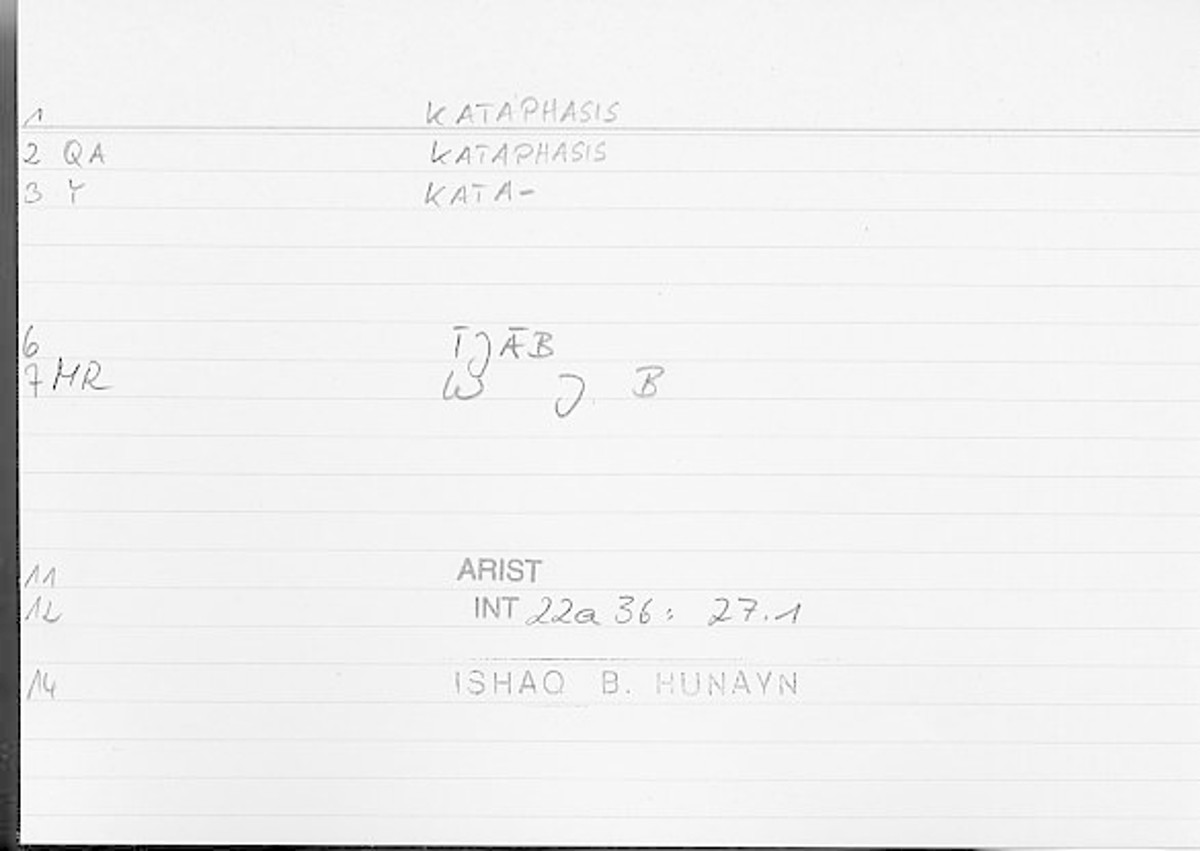 1 KATAPHASIS
2 QA KATAPHASIS
3 Y KATA-
6 ĪJĀB
7 MR W J B
11 ARIST
12 INT 22a 36: 27.1
14 ISHAQ B. HUNAYN